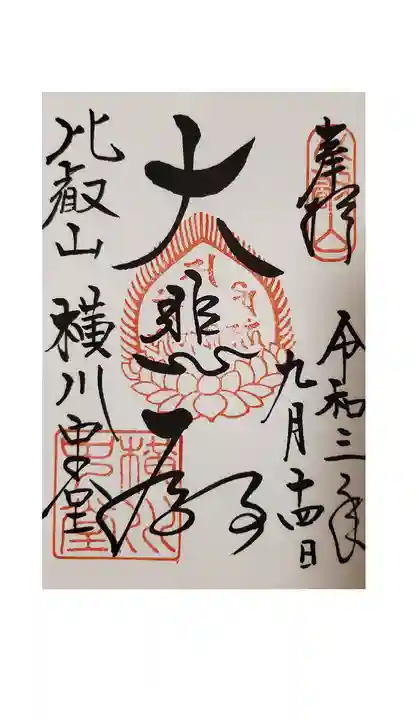 奉拝
令和三年
九月十四日
大悲殿
比叡山 横川中堂